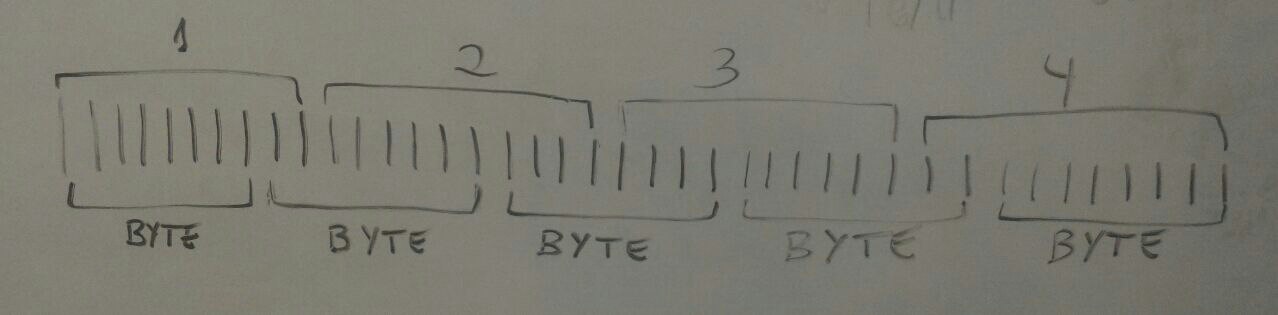 1 2 3 4
BYTE BYTE BYTE BYTE BYTE